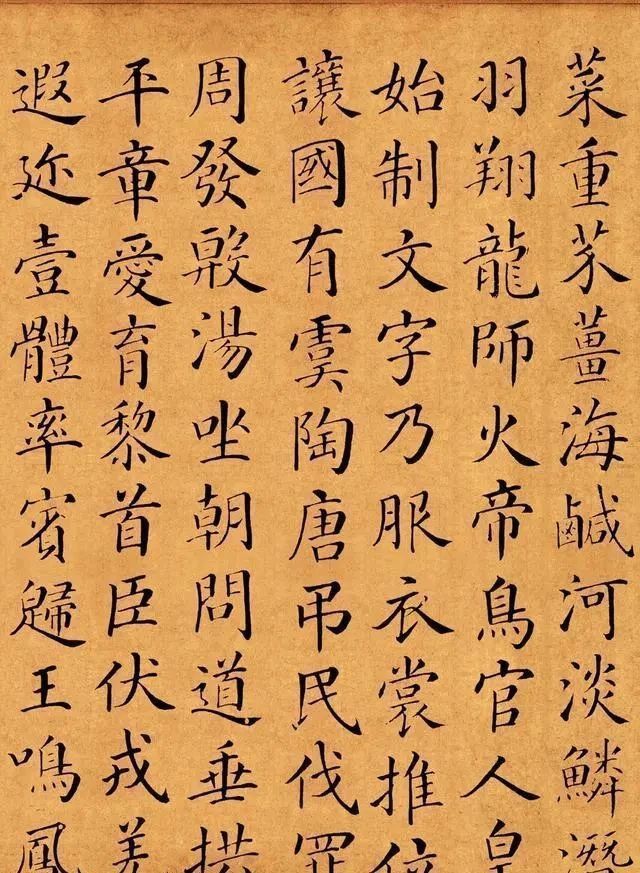 菜重芥薑海鹹河淡鱗潛
羽翔龍師火帝鳥官人皇
始制文字乃服衣裳推位
讓國有虞陶唐吊民伐罪
周發殷湯坐朝問道垂拱
平章愛育黎首臣伏戎羌
遐迩壹體率賓歸王鳴鳳